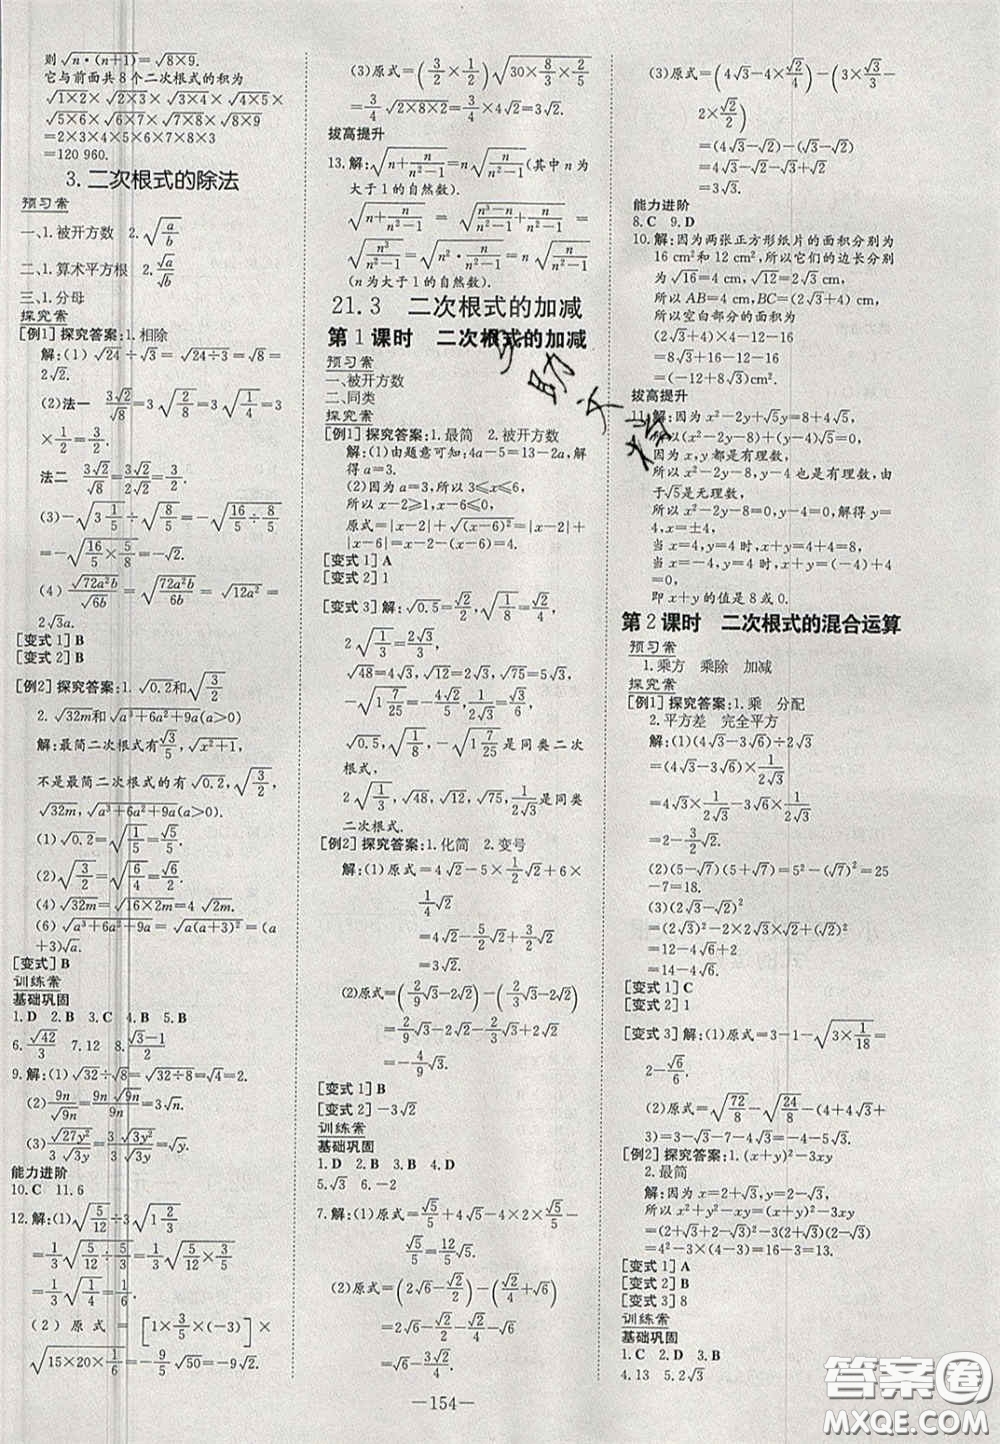 则√n·(n+1)=√8×9.
它与前面共8个二次根式的积为
√1×2×√2×3×√3×4×√4×5×
√5×6×√6×7×√7×8×√8×9
=2×3×4×5×6×7×8×3
=120 960.
3.二次根式的除法
预习案
一、1.被开方数 2.√(a/b)
二、1.算术平方根 2.√(a/b)
三、1.分母
探究案
[例1]探究答案:1.相除
解:(1)√24÷√3=√(24÷3)=√8=
2√2.
(2)法一 3√2/√8=3√(2/8)=3√(1/4)=3
×1/2=3/2.
法二 3√2/√8=3√2/2√2=3/2.
(3)-√(3 1/5)÷√(5/8)=-√(16/5÷5/8)
=-√(16/5×5/8)=-√2.
(4)√(72a²b)/√(6b)=√(72a²b/6b)=√(12a²)=
2√3a.
[变式1]B
[变式2]B
[例2]探究答案:1.√0.2和√(3/2)
2.√32m和√(a³+6a²+9a)(a>0)
解:最简二次根式有√3/5,√(x²+1),
不是最简二次根式的有√0.2,√(3/2),
√32m,√(a³+6a²+9a)(a>0).
(1)√0.2=√(1/5)=√5/5.
(2)√(3/2)=√3/√2=√6/2.
(4)√32m=√(16×2m)=4√2m.
(6)√(a³+6a²+9a)=√(a(a+3)²)=(a+
3)√a.
[变式]B
训练案
基础巩固
1.D 2.B 3.C 4.B 5.B
6.√42/3 7.12 8.(√3-1)/2
9.解:(1)√32÷√8=√(32÷8)=√4=2.
(2)9n/√9n=9n√9n/9n=3√n.
(3)√(27y²)/√(3y)=3√(3y²)/√(3y)=3√y.
能力进阶
10.C 11.6
12.解:(1)√(5/12)÷3√(1 2/3)
=1/3√(5/12÷5/3)=1/3√(5/12×3/5)
=1/3√(1/4)=1/6.
(2)原式=[1×3/5×(-3)]×
√(15×20×1/6)=-9/5√50=-9√2.
(3)原式=(3/2×1/2)√(30×8/3×2/5)
=3/4√(2×8×2)=3/4×4√2=3√2.
拔高提升
13.解:√(n+n/(n²-1))=n√(n/(n²-1))(其中n为
大于1的自然数).
√(n+n/(n²-1))=√((n³-n+n)/(n²-1))=
√(n³/(n²-1))=n√(n/(n²-1))
(n为大于1的自然数).
21.3 二次根式的加减
第1课时 二次根式的加减
预习案
一、被开方数
二、同类
探究案
[例1]探究答案:1.最简 2.被开方数
解:(1)由题意可知:4a-5=13-2a,解
得a=3.
(2)因为a=3,所以3≤x≤6,
所以x-2>0,x-6≤0,
原式=|x-2|+√(x-6)²=|x-2|+
|x-6|=x-2-(x-6)=4.
[变式1]A
[变式2]1
[变式3]解:√0.5=√2/2,√(1/8)=√2/4,
√48=4√3,√12=2√3,√75=5√3,
-√(1 7/25)=-4√2/5,1/2√3=√3/6,
√0.5,√(1/8),-√(1 7/25)是同类二次
根式.
2√(1/3),√48,√12,√75,1/2√3是同类
二次根式.
[例2]探究答案:1.化简 2.变号
解:(1)原式=4√2-5×1/2√2+6×
1/4√2
=4√2-5/2√2+3/2√2
=3√2.
(2)原式=(2/9√3-2√2)-(2/3√3-2√2)
=2/9√3-2√2-2/3√3+2√2
=-4/9√3.
[变式1]B
[变式2]-3√2
训练案
基础巩固
1.D 2.B 3.B 4.D
5.√3 6.-2
7.解:(1)原式=√5/5+4√5-4√5-
√5/5=0.
(2)原式=(2√6-√2/2)-(√2/4+√6)
=2√6-√2/2-√2/4-√6
=√6-3√2/4.
(3)原式=(4√3-4×√2/4)-(3×√3/3-
4×√2/2)
=(4√3-√2)-(√3-2√2)
=4√3-√2-√3+2√2
=3√3+√2.
能力进阶
8.C 9.D
10.解:因为两张正方形纸片的面积分别为
16 cm²和12 cm²,所以它们的边长分别为
√16=4 cm,√12=2√3 cm.
所以AB=4 cm,BC=(2√3+4)cm.
所以空白部分的面积=(2√3+4)×4-
12-16
=8√3+16-12-16
=(-12+8√3)cm².
拔高提升
11.解:因为x²-2y+√5y=8+4√5,
所以x²-2y-8=(4-y)√5,
因为x,y都是有理数,
所以x²-2y-8,4-y也是有理数,
由于√5是无理数,
所以x²-2y-8=0,4-y=0,解得y=
4,x=±4,
当x=4,y=4时,x+y=4+4=8,
当x=-4,y=4时,x+y=(-4)+4=0,
即x+y的值是8或0.
第2课时 二次根式的混合运算
预习案
1.乘方 乘除 加减
探究案
[例1]探究答案:1.乘 分配
2.平方差 完全平方
解:(1)(4√3-3√6)÷2√3
=(4√3-3√6)×1/2√3
=4√3×1/2√3-3√6×1/2√3
=2-3√2/2.
(2)(5-√7)(5+√7)=5²-(√7)²=25
-7=18.
(3)(2√3-√2)²
=(2√3)²-2×2√3×√2+(√2)²
=12-4√6+2
=14-4√6.
[变式1]C
[变式2]1
[变式3]解:(1)原式=3-1-√(3×1/18)=
2-√6/6.
(2)原式=√(72/8)-√(24/8)-(4-4√3+
3)=3-√3-7+4√3=3√3-4.
[例2]探究答案:1.(x+y)²-3xy
2.最简
解:因为x=2+√3,y=2-√3,
所以x²-xy+y²=(x+y)²-3xy
=(2+√3+2-√3)²-3(2+√3)(2-√3)
=4²-3×(4-3)=16-3=13.
[变式1]A
[变式2]B
[变式3]8
训练案
基础巩固
1.C 2.D 3.B
4.13 5.2√3
—154—
答案圈
MXQE.COM